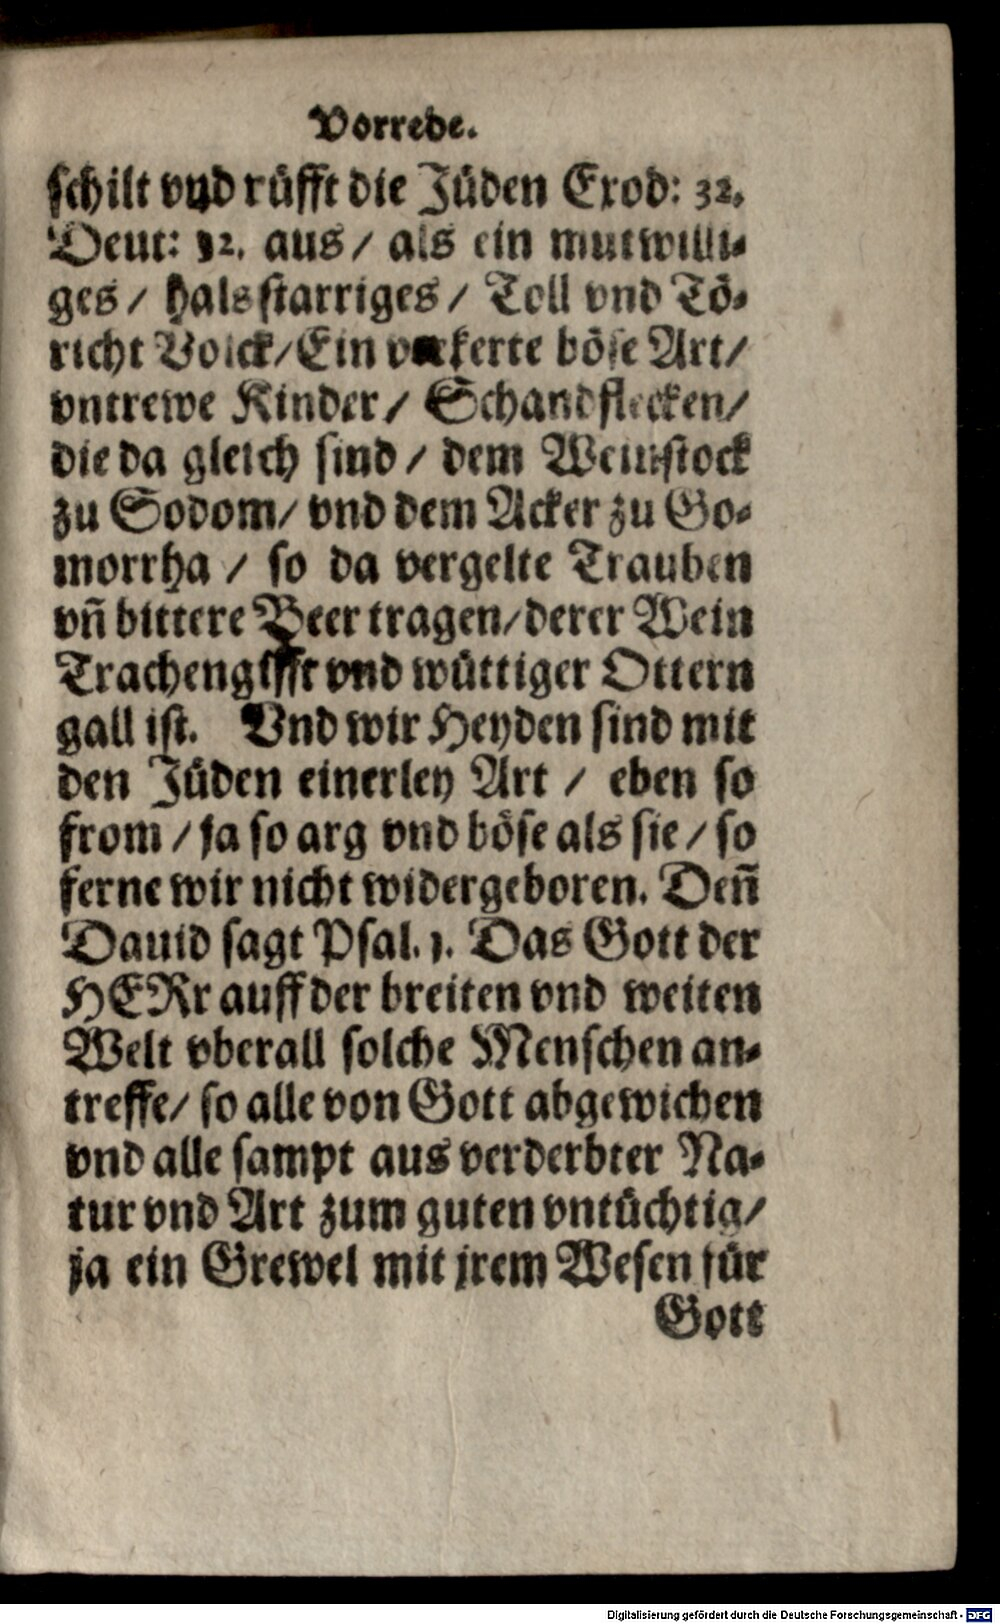 Vorrede.
schilt vnd rüfft die Jüden Exod: 32.
Deut: 32. aus / als ein mutwilli⸗
ges / halsstarriges / Toll vnd Tö⸗
richt Volck / Ein verkerte böse Art /
vntrewe Kinder / Schandflecken /
die da gleich sind / dem Weinstock
zu Sodom / vnd dem Acker zu Go⸗
morrha / so da vergelte Trauben
vñ bittere Beer tragen / derer Wein
Trachengifft vnd wüttiger Ottern
gall ist. Vnd wir Heyden sind mit
den Jüden einerley Art / eben so
from / ja so arg vnd böse als sie / so
ferne wir nicht widergeboren. Deñ
Dauid sagt Psal. 1. Das Gott der
HERr auff der breiten vnd weiten
Welt vberall solche Menschen an⸗
treffe / so alle von Gott abgewichen
vnd alle sampt aus verderbter Na⸗
tur vnd Art zum guten vntüchtig /
ja ein Grewel mit jrem Wesen für
Gott
Digitalisierung gefördert durch die Deutsche Forschungsgemeinschaft - DFG